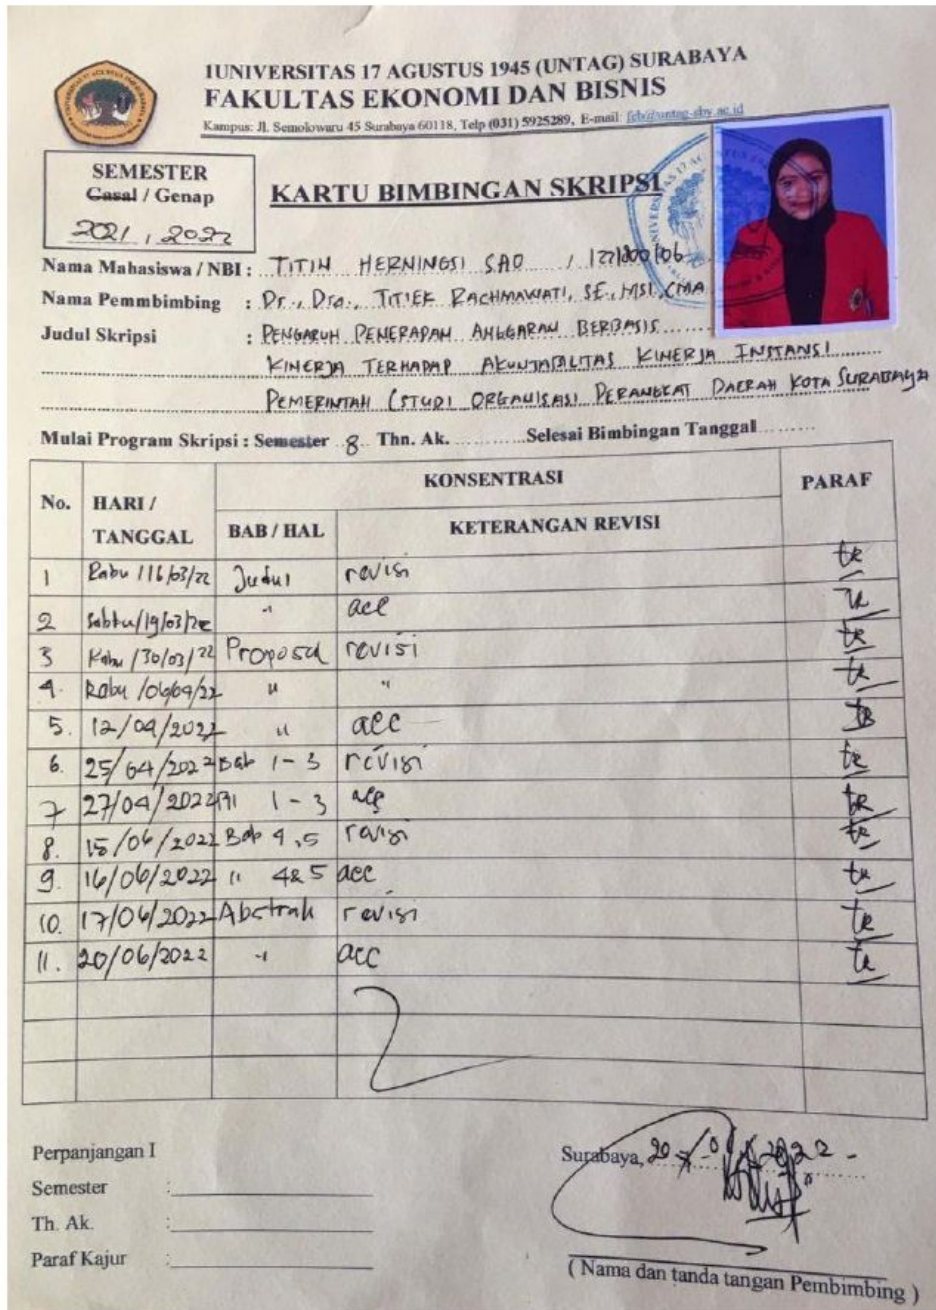 1UNIVERSITAS 17 AGUSTUS 1945 (UNTAG) SURABAYA
FAKULTAS EKONOMI DAN BISNIS
Kampus: Jl. Semolowaru 45 Surabaya 60118, Telp (031) 5925289, E-mail: feb@untag-sby.ac.id
SEMESTER
Gasal / Genap
2021 / 2022
KARTU BIMBINGAN SKRIPSI
Nama Mahasiswa / NBI : TITIN HERNINGSI SAO /
Nama Pemmbimbing : Dr., Dra., TITIEK RACHMAWATI, SE., MSI., CMA
Judul Skripsi : PENGARUH PENERAPAN ANGGARAN BERBASIS
KINERJA TERHADAP AKUNTABILITAS KINERJA INSTANSI
PEMERINTAH (STUDI ORGANISASI PERANGKAT DAERAH KOTA SURABAYA
Mulai Program Skripsi : Semester 8 Thn. Ak. ............ Selesai Bimbingan Tanggal ........
KONSENTRASI
No. HARI / TANGGAL BAB / HAL KETERANGAN REVISI PARAF
1 Rabu /16/03/22 Judul revisi tr
2 Sabtu/19/03/22 " acc tr
3 Rabu /30/03/22 Proposal revisi tr
4. Rabu /06/04/22 " " tr
5. 12/04/2022 " acc tr
6. 25/04/2022 Bab 1-3 revisi tr
7 27/04/2022 1-3 acc tr
8. 15/06/2022 Bab 4,5 revisi tr
9. 16/06/2022 " 4&5 acc tr
10. 17/06/2022 Abstrak revisi tr
11. 20/06/2022 " acc tr
Perpanjangan I
Semester :
Th. Ak. :
Paraf Kajur :
Surabaya, 20
( Nama dan tanda tangan Pembimbing )